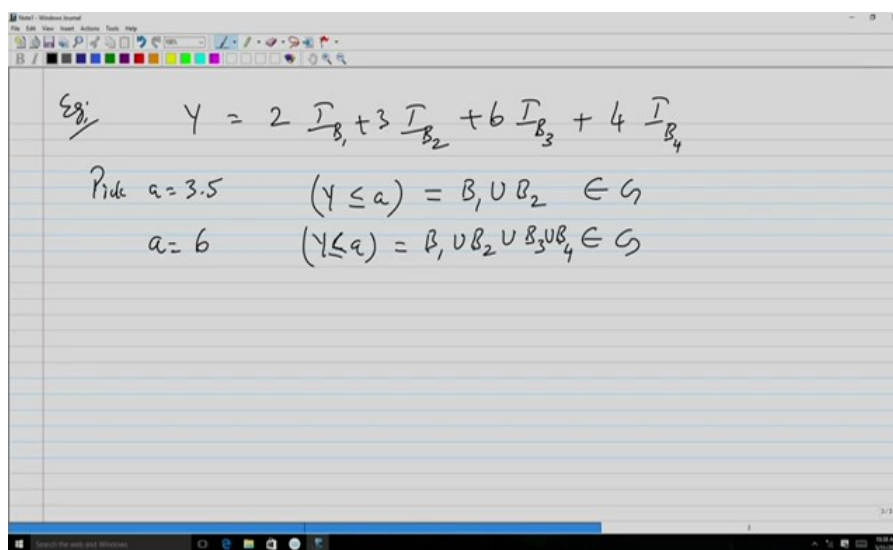 Note1 - Windows Journal
File Edit View Insert Actions Tools Help
B I
Eg:
Y = 2 I_{B_1} + 3 I_{B_2} + 6 I_{B_3} + 4 I_{B_4}
Pick a = 3.5 (Y ≤ a) = B_1 ∪ B_2 ∈ G
a = 6 (Y ≤ a) = B_1 ∪ B_2 ∪ B_3 ∪ B_4 ∈ G
3/3
Search the web and Windows